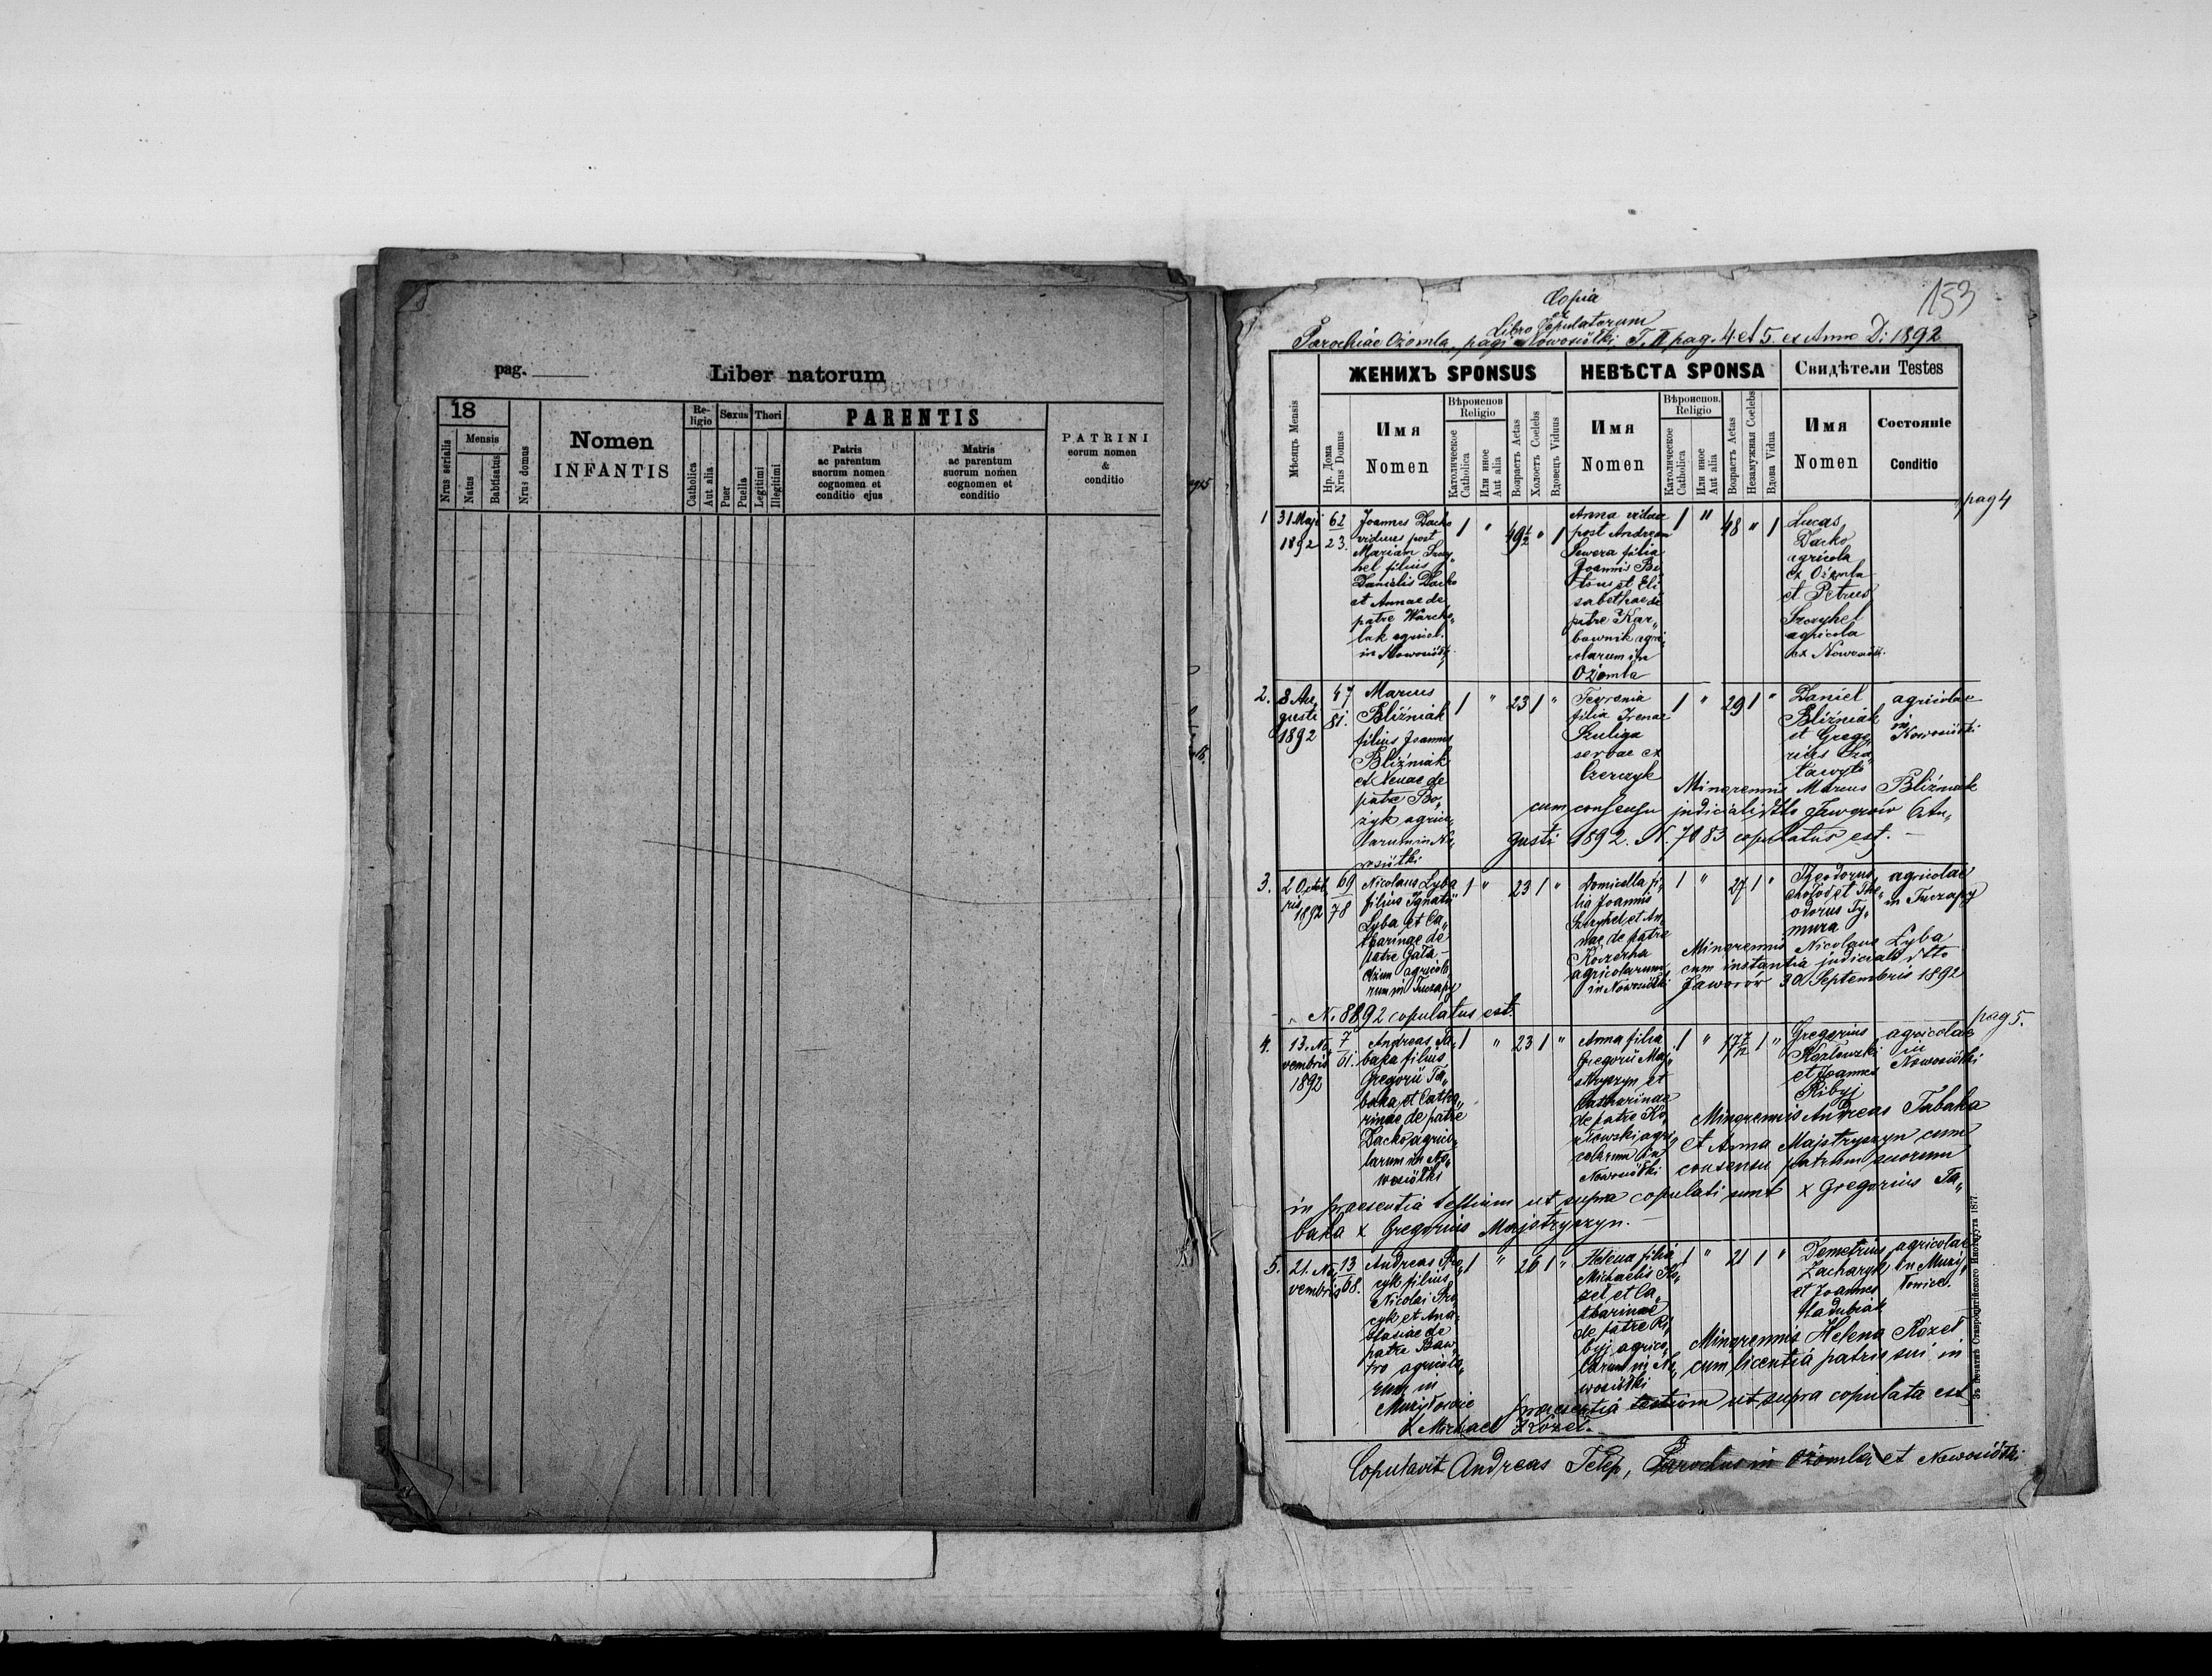 pag.
Liber natorum
18
Nrus serialis
Mensis
Natus
Babtisatus
Nrus domus
Nomen
INFANTIS
Re-
ligio
Catholica
Aut alia
Sexus
Puer
Puella
Thori
Legitimi
Illegitimi
PARENTIS
Patris
ac parentum
suorum nomen
cognomen et
conditio ejus
Matris
ac parentum
suorum nomen
cognomen et
conditio
PATRINI
eorum nomen
&
conditio
153
Copia
ex
Libro Copulatorum
Parochiae Ożomla, pagi Nowosiółki T. II pag. 4. et 5. ex Anno D: 1892
Мѣсяцъ Mensis
ЖЕНИХЪ SPONSUS
Нр. Дома
Nrus Domus
Имя
Nomen
Вѣроиспов
Religio
Католическое
Catholica
Или иное
Aut alia
Возрастъ Aetas
Холостъ Coelebs
Вдовецъ Viduus
НЕВѢСТА SPONSA
Имя
Nomen
Вѣроиспов.
Religio
Католическое
Catholica
Или иное
Aut alia
Возрастъ Aetas
Незамужная Coelebs
Вдова Vidua
Свидѣтели Testes
Имя
Nomen
Состояніе
Conditio
pag 4
1
31 Maji
1892
62
23.
Joannes Dacko
viduus post
Mariam Szczy„
hel filius
Danielis Dacko
et Annae de
patre Warcho„
lak agricol.
in Nowosiółk.
1 " 49½ " 1
Anna vidua
post Andream
Sewera filia
Joannis Bi
tous et Eli
sabethae de
patre Kar„
bownik agri„
colarum in
Ożomla
1 " 48 " 1
Lucas
Dacko
agricola
ex Ożomla
et Petrus
Szczyhel
agricola
ex Nowosiółk.
2.
8 Au„
gusti
1892
47
81.
Marcus
Bliźniak
filius Joannis
Bliźniak
et Xenae de
patre Bo„
żyk agrico„
larum in No„
wosiółki
1 " 23 1 "
filia Irenae
Szuliga
servae ex
1 " 29 1 "
Daniel
Bliźniak
et Grego„
rius
agricolae
in
Nowosiółki
Minorennis Marcus Bliźniak
cum consensu judiciali dtto Jaworów 6 Au„
gusti 1892. N. 7083 copulatus est. -
3.
2 Octob
ris
1892
69
78
Nicolaus Lyba
filius Ignatii
Lyba et Ca„
tharinae de
patre Gała-
dżun agricola„
rum in Tuczapy
1 " 23 1 "
Domicella fi„
lia Joannis
Szczyhel et An„
nae de patre
agricolarum
in Nowosiółki
1 " 27 1 "
Theodorus
Chołod et The„
odorus Ty„
mura
agricolae
in Tuczapy
Minorennis Nicolaus Lyba
cum instantia judiciali dtto
Jaworów 30 Septembris 1892
N. 8892 copulatus est.
pag 5.
4.
13. No„
vembris
1892
7
61.
Andreas Ta„
baka filius
Gregorii Ta„
baka et Catha„
rinae de patre
Dacko agrico„
larum in No„
wosiółki
1 " 23 1 "
Anna filia
Gregorii Maj„
stryszyn et
Catharinae
de patre Ko„
złowski agri„
colarum in
Nowosiółki
1 " 17 7/12 1 "
Gregorius
Kozłowski
et Joannes
Ribyj
agricolae
in
Nowosiółki
Minorennis Andreas Tabaka
et Anna Majstryszyn cum
consensu patrum suorum
in praesentia testium ut supra copulati sunt x Gregorius Ta„
baka x Gregorius Majstryszyn. -
5.
21. No„
vembris
13
68.
Andreas Pro„
cyk filius
Nicolai Pro„
cyk et Ana„
stasiae de
patre Baw„
tro agricola„
rum in
Mużyłowice
1 " 26 1 "
Helena filia
Michaelis Ko„
zel et Ca„
tharinae
de patre Ri„
byj agrico„
larum in No„
wosiółki
1 " 21 1 "
Demetrius
Zacharyk
et Joannes
Hadubiak
agricolae
in Muży„
łowice.
Minorennis Helena Kozeł
cum licentia patris sui in
praesentia testium ut supra copulata est
x Michael Kozeł. -
Copulavit Andreas Telep, Parochus in Ożomla et Nowosiółki
Зъ печатнѣ Ставропигійского Института 1877.